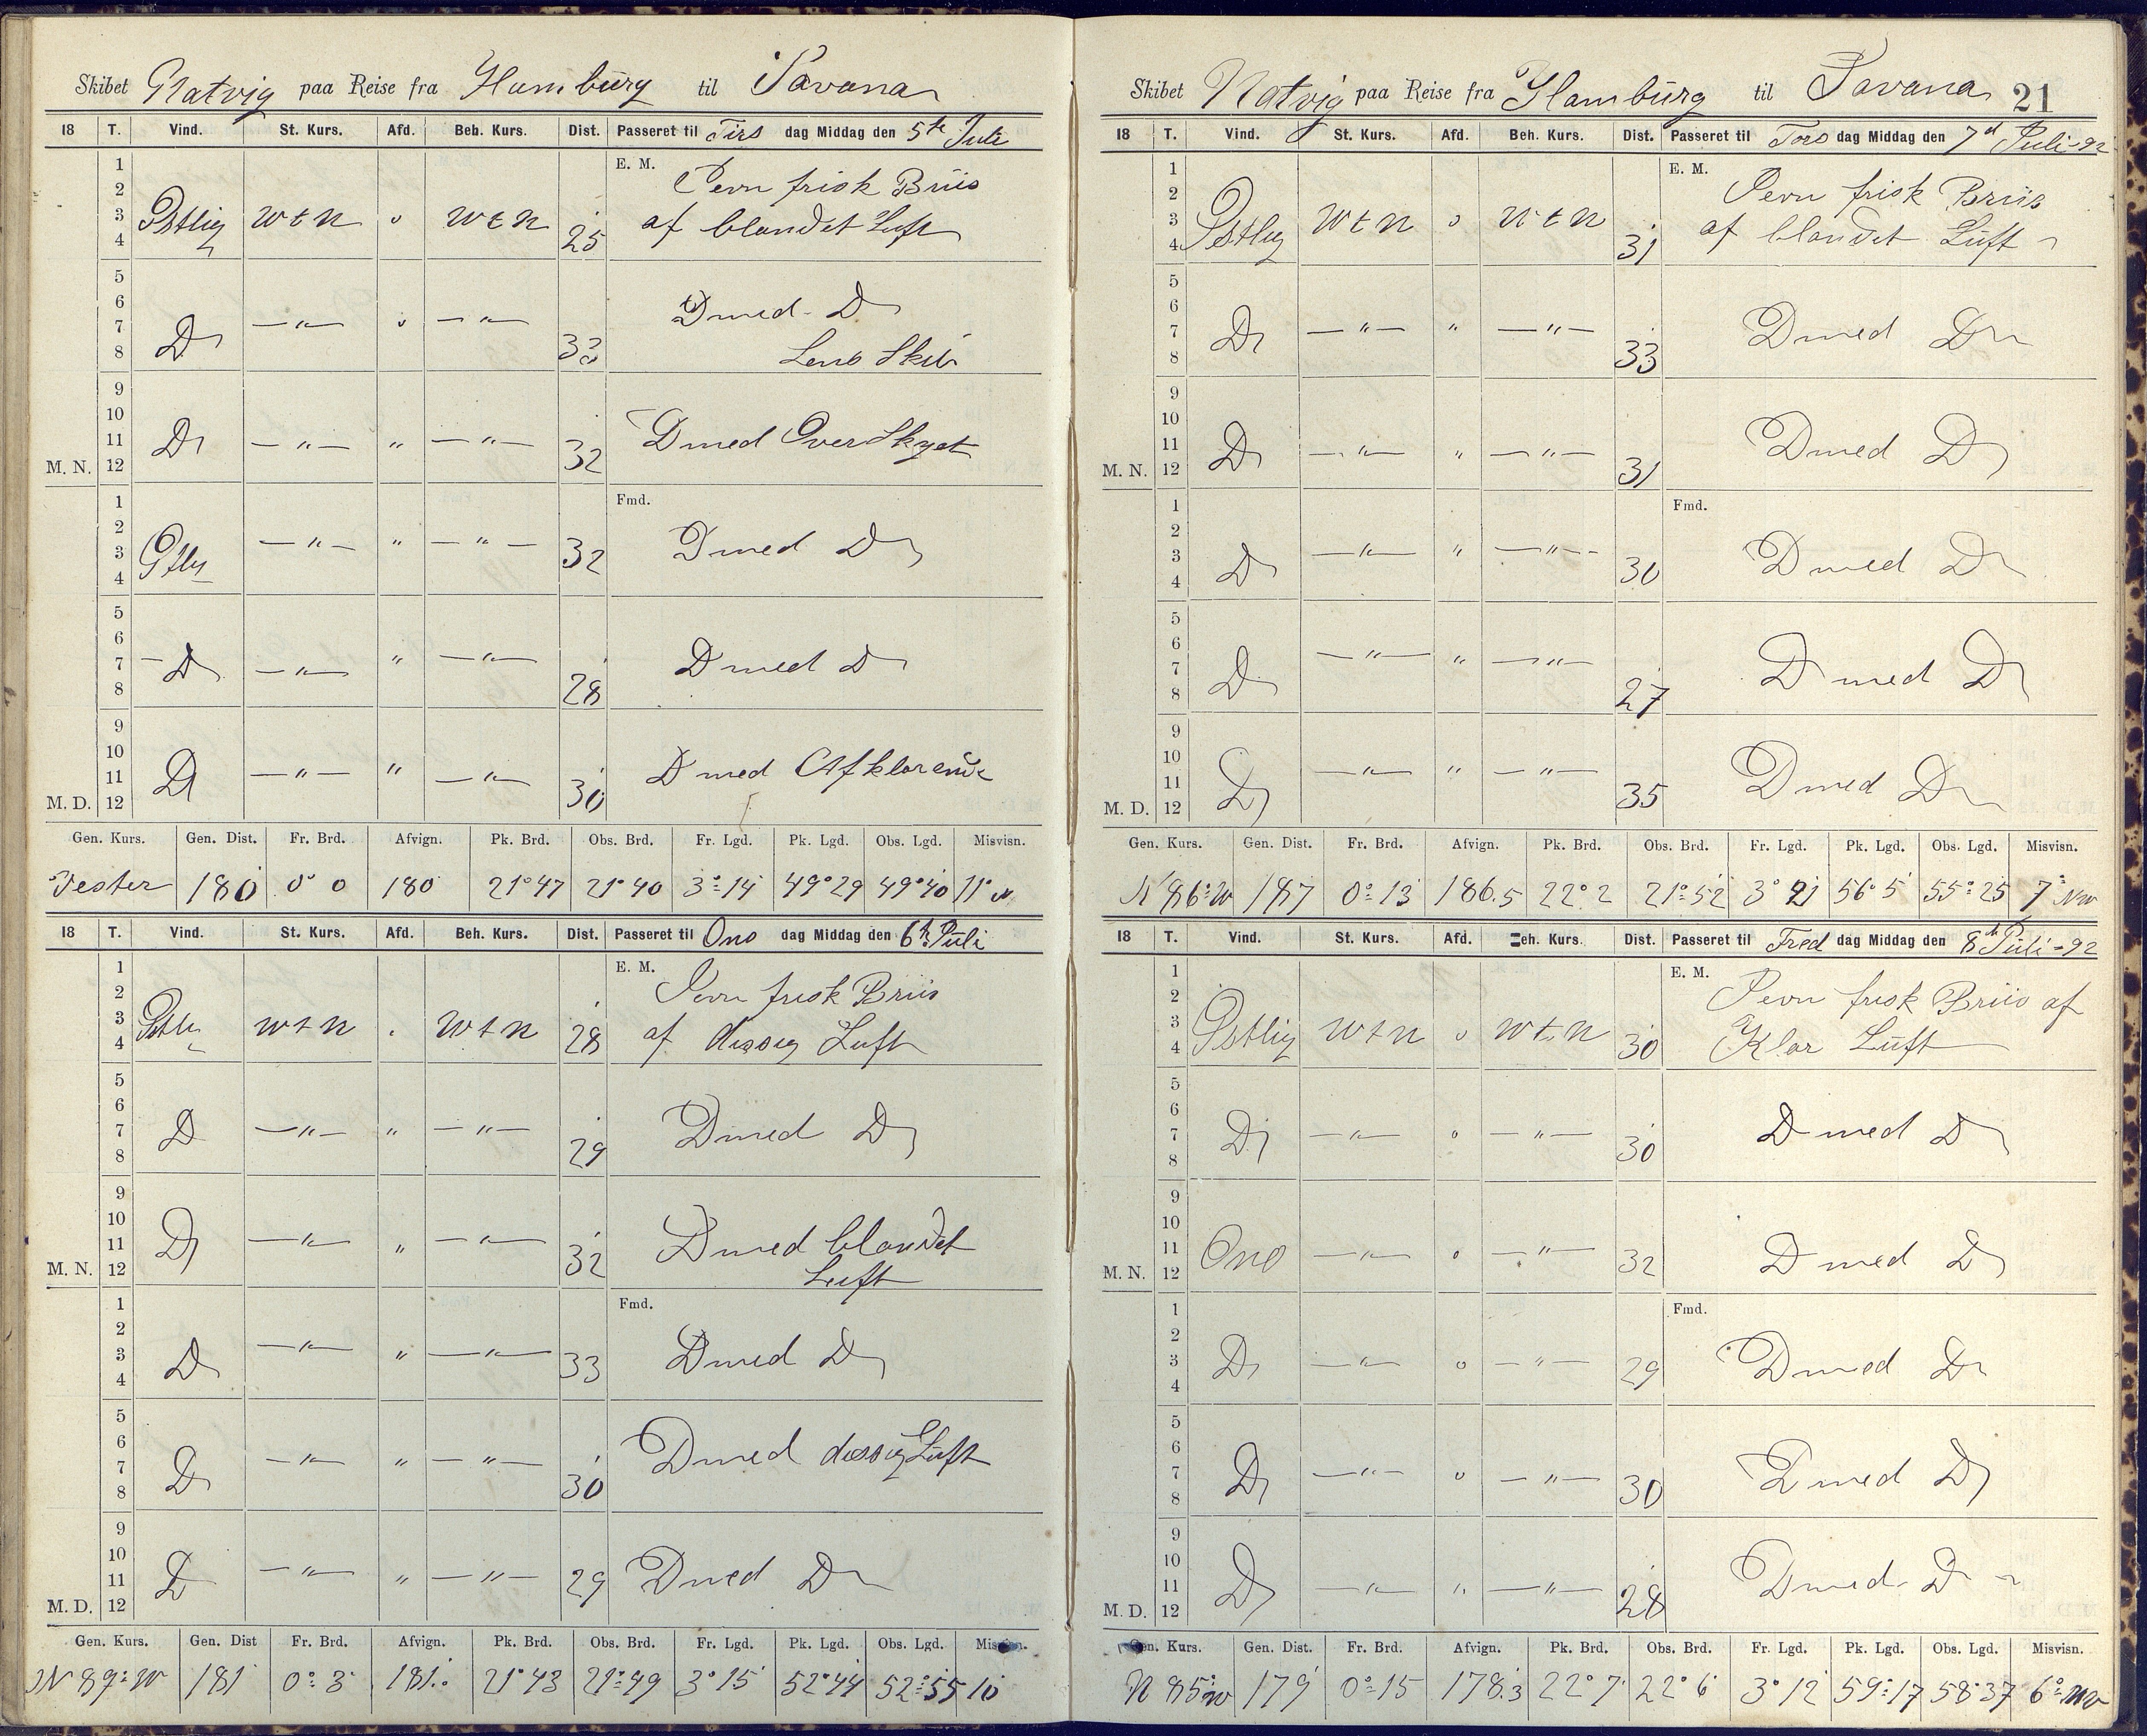 Skibet Natvig paa Reise fra Hamburg til Savana
18 T. Vind. St. Kurs. Afd. Beh. Kurs. Dist. Passeret til Tirs dag Middag den 5te Juli
E. M. Jevn frisk Briis
1 2 3 4 Østlig W t N o W t N 25 af blandet Luft
5 6 7 8 D — " — o — " — 33 D med D
Lens Skib
9 10 11 M. N. 12 D — " — " — " — 32 D med Overskyet
Fmd.
1 2 3 4 Østlig — " — " — " — 32 D med D
5 6 7 8 D — " — " — " — 28 D med D
9 10 11 M. D. 12 D — " — " — " — 30 D med Afklarende
Gen. Kurs. Gen. Dist. Fr. Brd. Afvign. Pk. Brd. Obs. Brd. Fr. Lgd. Pk. Lgd. Obs. Lgd. Misvisn.
Vester 180 0° 0 180 21° 47 21° 40 3° 14 49° 29 49° 40 11°
18 T. Vind. St. Kurs. Afd. Beh. Kurs. Dist. Passeret til Ons dag Middag den 6te Juli
E. M. Jevn frisk Briis
1 2 3 4 Østlig W t N W t N 28 af dissig Luft
5 6 7 8 D — " — " — " — 29 D med D
9 10 11 M. N. 12 D — " — " — " — 32 D med blandet
Luft
Fmd.
1 2 3 4 D — " — " — " — 33 D med D
5 6 7 8 D — " — " — " — 30 D med dissig Luft
9 10 11 M. D. 12 D — " — " — " — 29 D med D
Gen. Kurs. Gen. Dist Fr. Brd. Afvign. Pk. Brd. Obs. Brd. Fr. Lgd. Pk. Lgd. Obs. Lgd. Misvisn.
N 89° W 181 0° 3 181. 21° 43 21° 49 3° 15 52° 44 52° 55 10
Skibet Natvig paa Reise fra Hamburg til Savana 21
18 T. Vind. St. Kurs. Afd. Beh. Kurs. Dist. Passeret til Tors dag Middag den 7d Juli-92
E. M. Jevn frisk Briis
1 2 3 4 Østlig W t N o W t N 31 af blandet Luft
5 6 7 8 D — " — " — " — 33 D med D
9 10 11 M. N. 12 D — " — " — " — 31 D med D
Fmd.
1 2 3 4 D — " — " — " — 30 D med D
5 6 7 8 D — " — " — " — 27 D med D
9 10 11 M. D. 12 D — " — " — " — 35 D med D
Gen. Kurs. Gen. Dist. Fr. Brd. Afvign. Pk. Brd. Obs. Brd. Fr. Lgd. Pk. Lgd. Obs. Lgd. Misvisn.
N 86° W 187 0° 13 186.5 22° 2 21° 52 3° 21 56° 5 55° 25 7° NW
18 T. Vind. St. Kurs. Afd. Beh. Kurs. Dist. Passeret til Fred dag Middag den 8de Juli-92
E. M. Jevn frisk Briis af
1 2 3 4 Østlig W t N o W t N 30 Klar Luft
5 6 7 8 D — " — o — " — 30 D med D
9 10 11 M. N. 12 Ono — " — o — " — 32 D med D
Fmd.
1 2 3 4 D — " — o — " — 29 D med D
5 6 7 8 D — " — o — " — 30 D med D
9 10 11 M. D. 12 D — " — " — " — 28 D med D
Gen. Kurs. Gen. Dist. Fr. Brd. Afvign. Pk. Brd. Obs. Brd. Fr. Lgd. Pk. Lgd. Obs. Lgd. Misvisn.
N 85° W 179 0° 15 178.3 22° 7 22° 6 3° 12 59° 17 58° 37 6° NW